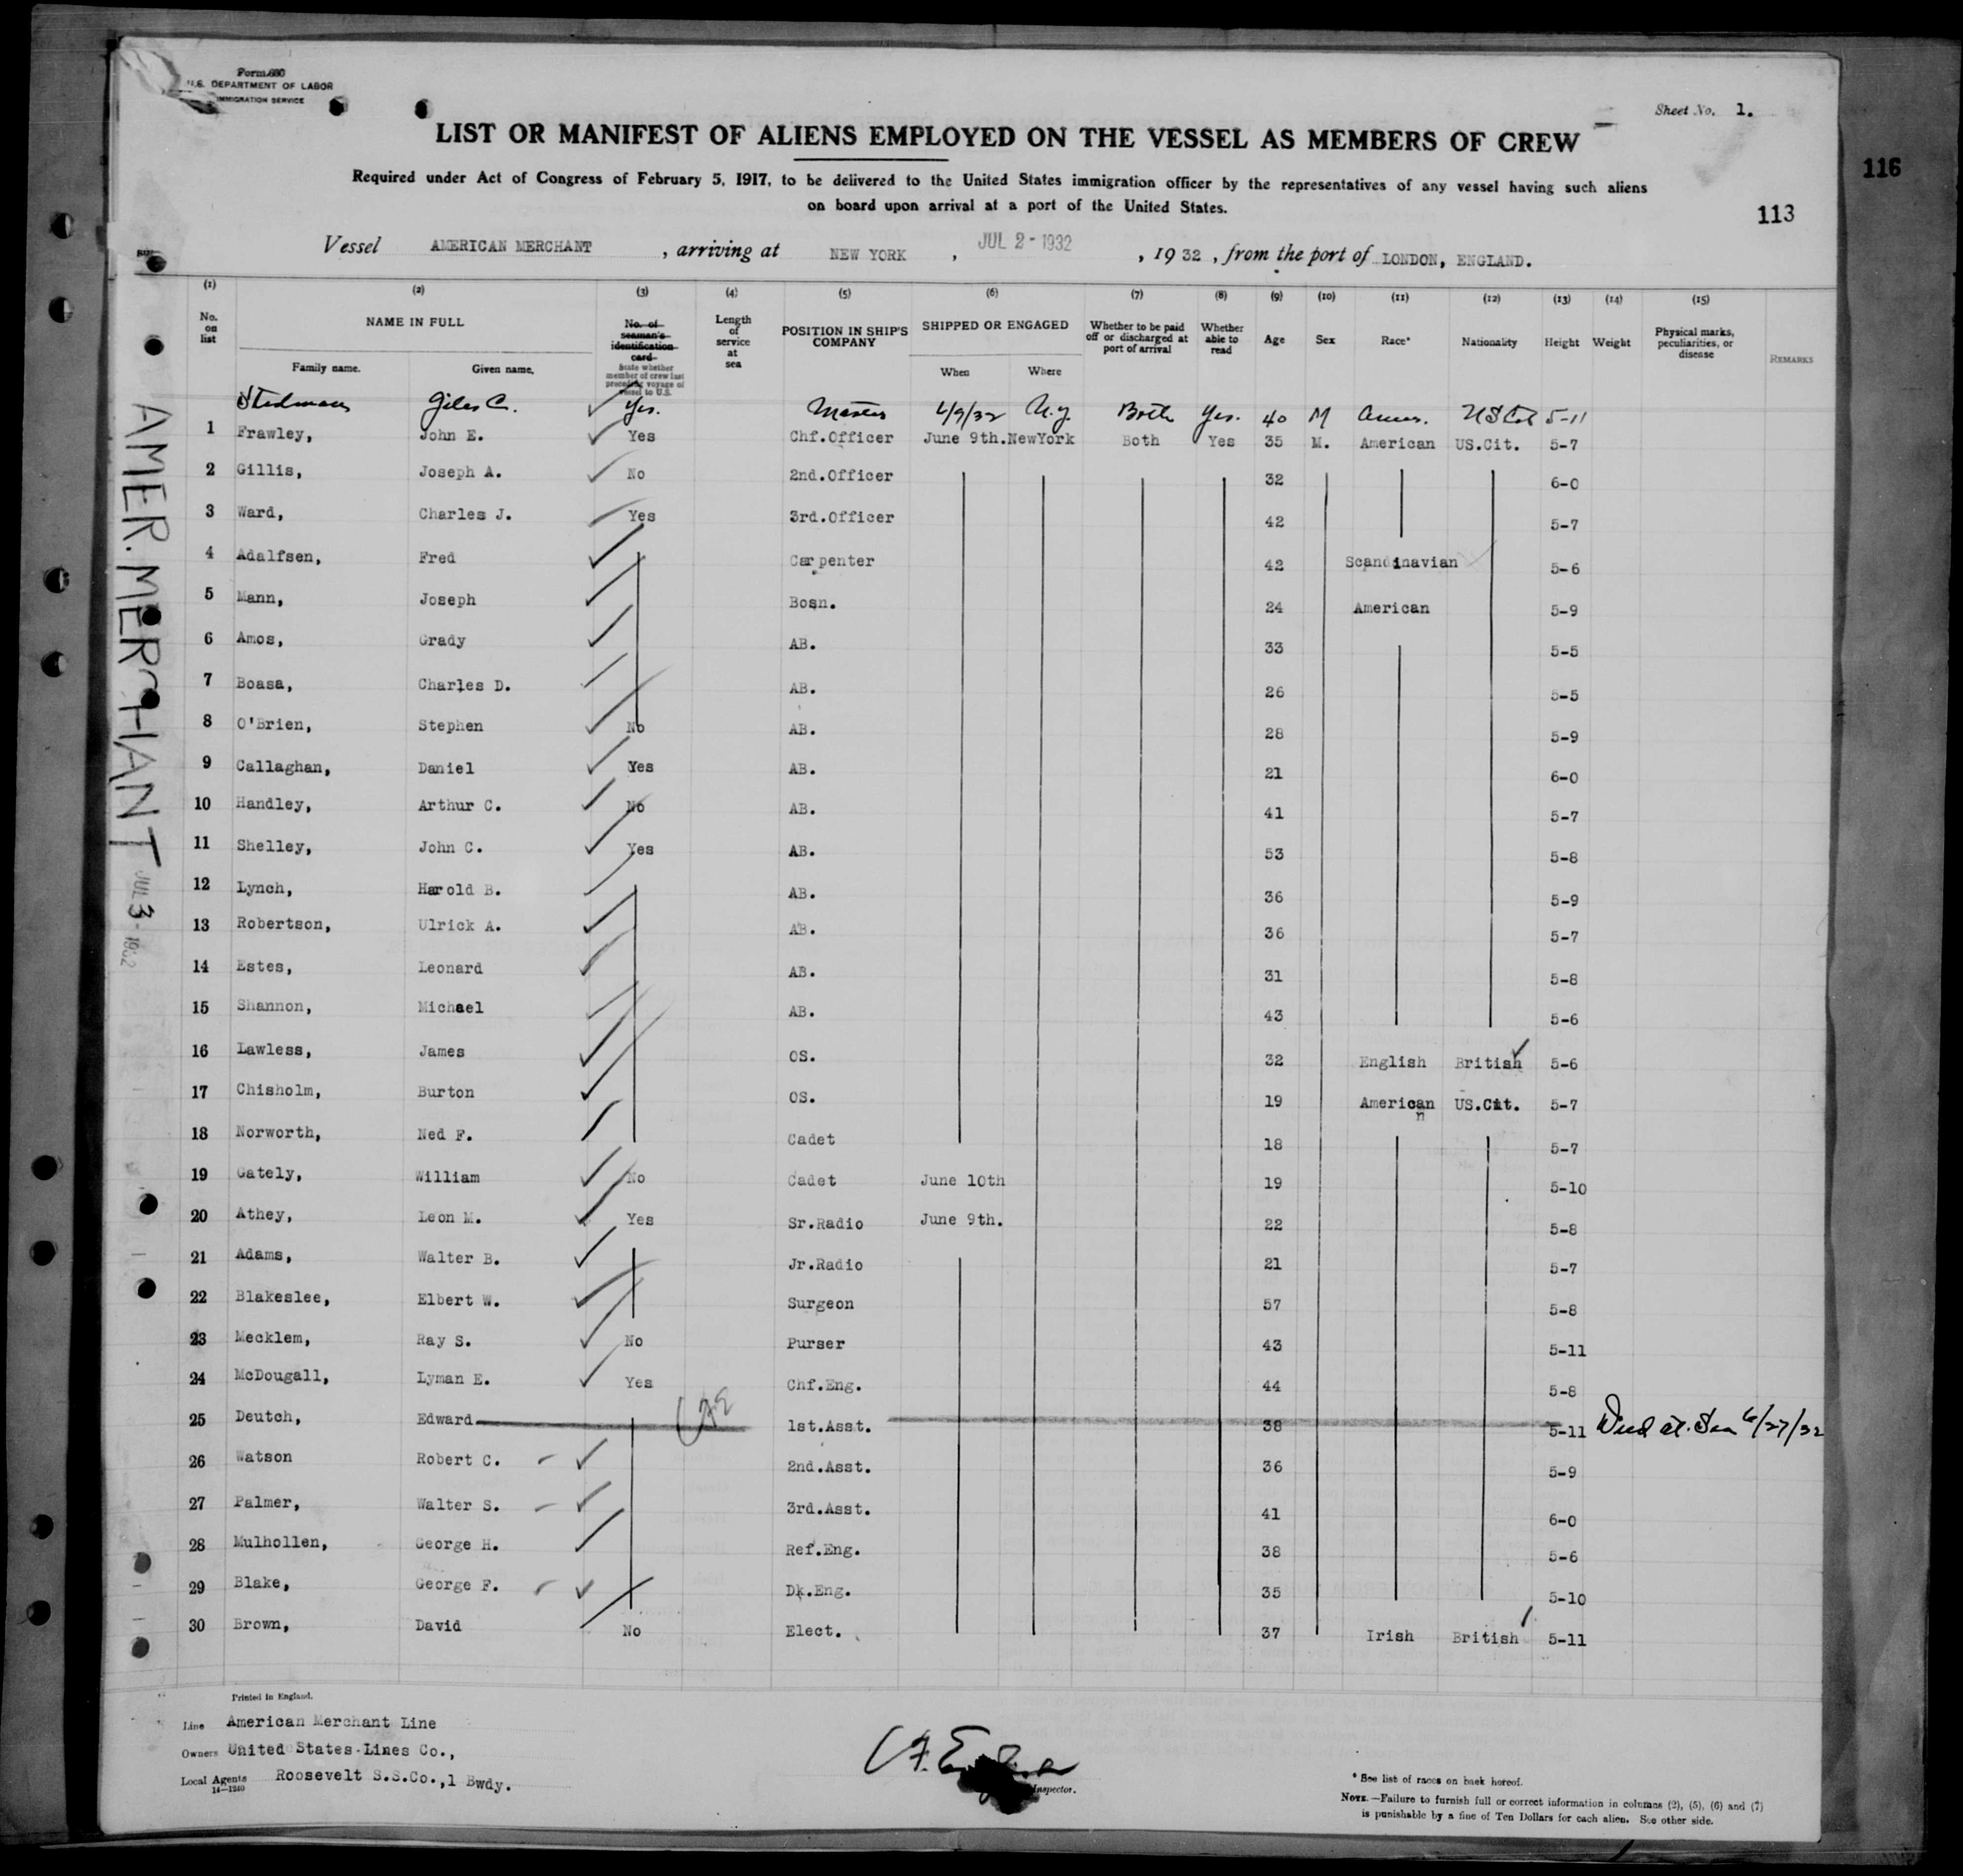 Form 680
U.S. DEPARTMENT OF LABOR
IMMIGRATION SERVICE
Sheet No. 1.
LIST OR MANIFEST OF ALIENS EMPLOYED ON THE VESSEL AS MEMBERS OF CREW
116
Required under Act of Congress of February 5, 1917, to be delivered to the United States immigration officer by the representatives of any vessel having such aliens
on board upon arrival at a port of the United States.
113
Vessel AMERICAN MERCHANT, arriving at NEW YORK, JUL 2 - 1932, 1932, from the port of LONDON, ENGLAND.
(1) (2) (3) (4) (5) (6) (7) (8) (9) (10) (11) (12) (13) (14) (15)
No. on list NAME IN FULL Family name. Given name. No. of seaman's identification card State whether member of crew last preceding voyage of vessel to U.S. Length of service at sea POSITION IN SHIP'S COMPANY SHIPPED OR ENGAGED When Where Whether to be paid off or discharged at port of arrival Whether able to read Age Sex Race* Nationality Height Weight Physical marks, peculiarities, or disease REMARKS
Stedman Giles C. Yes. Master 6/9/32 N.Y. Both Yes. 40 M Amer. US Cit 5-11
1 Frawley, John E. Yes Chf.Officer June 9th. NewYork Both Yes 35 M. American US.Cit. 5-7
2 Gillis, Joseph A. No 2nd.Officer 32 6-0
3 Ward, Charles J. Yes 3rd.Officer 42 5-7
4 Adalfsen, Fred Carpenter 42 Scandinavian 5-6
5 Mann, Joseph Bosn. 24 American 5-9
6 Amos, Grady AB. 33 5-5
7 Boasa, Charles D. AB. 26 5-5
8 O'Brien, Stephen No AB. 28 5-9
9 Callaghan, Daniel Yes AB. 21 6-0
10 Handley, Arthur C. No AB. 41 5-7
11 Shelley, John C. Yes AB. 53 5-8
12 Lynch, Harold B. AB. 36 5-9
13 Robertson, Ulrick A. AB. 36 5-7
14 Estes, Leonard AB. 31 5-8
15 Shannon, Michael AB. 43 5-6
16 Lawless, James OS. 32 English British 5-6
17 Chisholm, Burton OS. 19 American US.Cit. 5-7
n
18 Norworth, Ned F. Cadet 18 5-7
19 Gately, William No Cadet June 10th 19 5-10
20 Athey, Leon M. Yes Sr.Radio June 9th. 22 5-8
21 Adams, Walter B. Jr.Radio 21 5-7
22 Blakeslee, Elbert W. Surgeon 57 5-8
23 Mecklem, Ray S. No Purser 43 5-11
24 McDougall, Lyman E. Yes Chf.Eng. 44 5-8
25 Deutch, Edward 1st.Asst. 38 5-11 Died at Sea 6/27/32
26 Watson Robert C. 2nd.Asst. 36 5-9
27 Palmer, Walter S. 3rd.Asst. 41 6-0
28 Mulhollen, George H. Ref.Eng. 38 5-6
29 Blake, George F. Dk.Eng. 35 5-10
30 Brown, David No Elect. 37 Irish British 5-11
AMER. MERCHANT JUL 3 - 1932
Printed in England.
Line American Merchant Line
Owners United States Lines Co.,
Local Agents Roosevelt S.S.Co.,1 Bwdy.
14-1240
Inspector.
* See list of races on back hereof.
NOTE.—Failure to furnish full or correct information in columns (2), (5), (6) and (7)
is punishable by a fine of Ten Dollars for each alien. See other side.